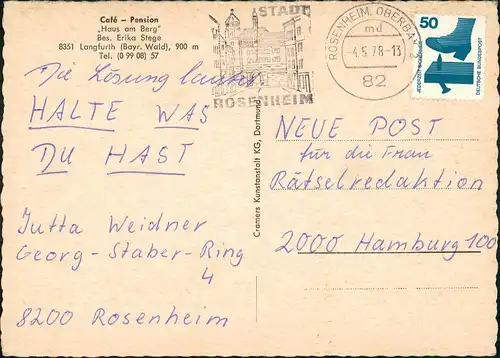 Café – Pension
„Haus am Berg"
Bes. Erika Stege
8351 Langfurth (Bayr. Wald), 900 m
Tel. (0 99 08) 57
Die Lösung lautet
HALTE WAS
DU HAST
Jutta Weidner
Georg-Staber-Ring
4
8200 Rosenheim
Cramers Kunstanstalt KG, Dortmund
STADT
ROSENHEIM
ROSENHEIM, OBERBAY
md
-4.5.78-13
82
50
JEDERZEIT SICHERHEIT
DEUTSCHE BUNDESPOST
NEUE POST
für die Frau
Rätselredaktion
2000 Hamburg 100